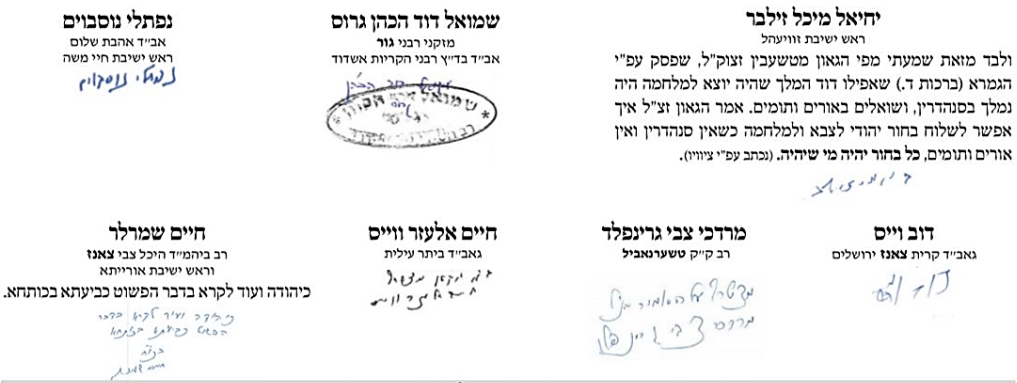 יחיאל מיכל זילבר
ראש ישיבת זוויעהל
ולבד מזאת שמעתי מפי הגאון מטשעבין זצוק"ל, שפסק עפ"י
הגמרא (ברכות ד.) שאפילו דוד המלך שהיה יוצא למלחמה היה
נמלך בסנהדרין, ושואלים באורים ותומים. אמר הגאון זצ"ל איך
אפשר לשלוח בחור יהודי לצבא ולמלחמה כשאין סנהדרין ואין
אורים ותומים, כל בחור יהיה מי שיהיה. (נכתב עפ"י ציוויו).
שמואל דוד הכהן גרוס
מזקני רבני גור
אב"ד בד"ץ רבני הקריות אשדוד
נפתלי נוסבוים
אב"ד אהבת שלום
ראש ישיבת חיי משה
נפתלי נוסבוים
דוב וייס
גאב"ד קרית צאנז ירושלים
דוב וייס
מרדכי צבי גרינפלד
רב ק"ק טשערנאביל
מצטרף על האמור מעל
מרדכי צבי גרינפלד
חיים אלעזר ווייס
גאב"ד ביתר עילית
חיים שמרלר
רב ביהמ"ד היכל צבי צאנז
וראש ישיבת אורייתא
כיהודה ועוד לקרא בדבר הפשוט כביעתא בכותחא.
כיהודה ועוד לקרא בדבר
הפשוט כביעתא בכותחא